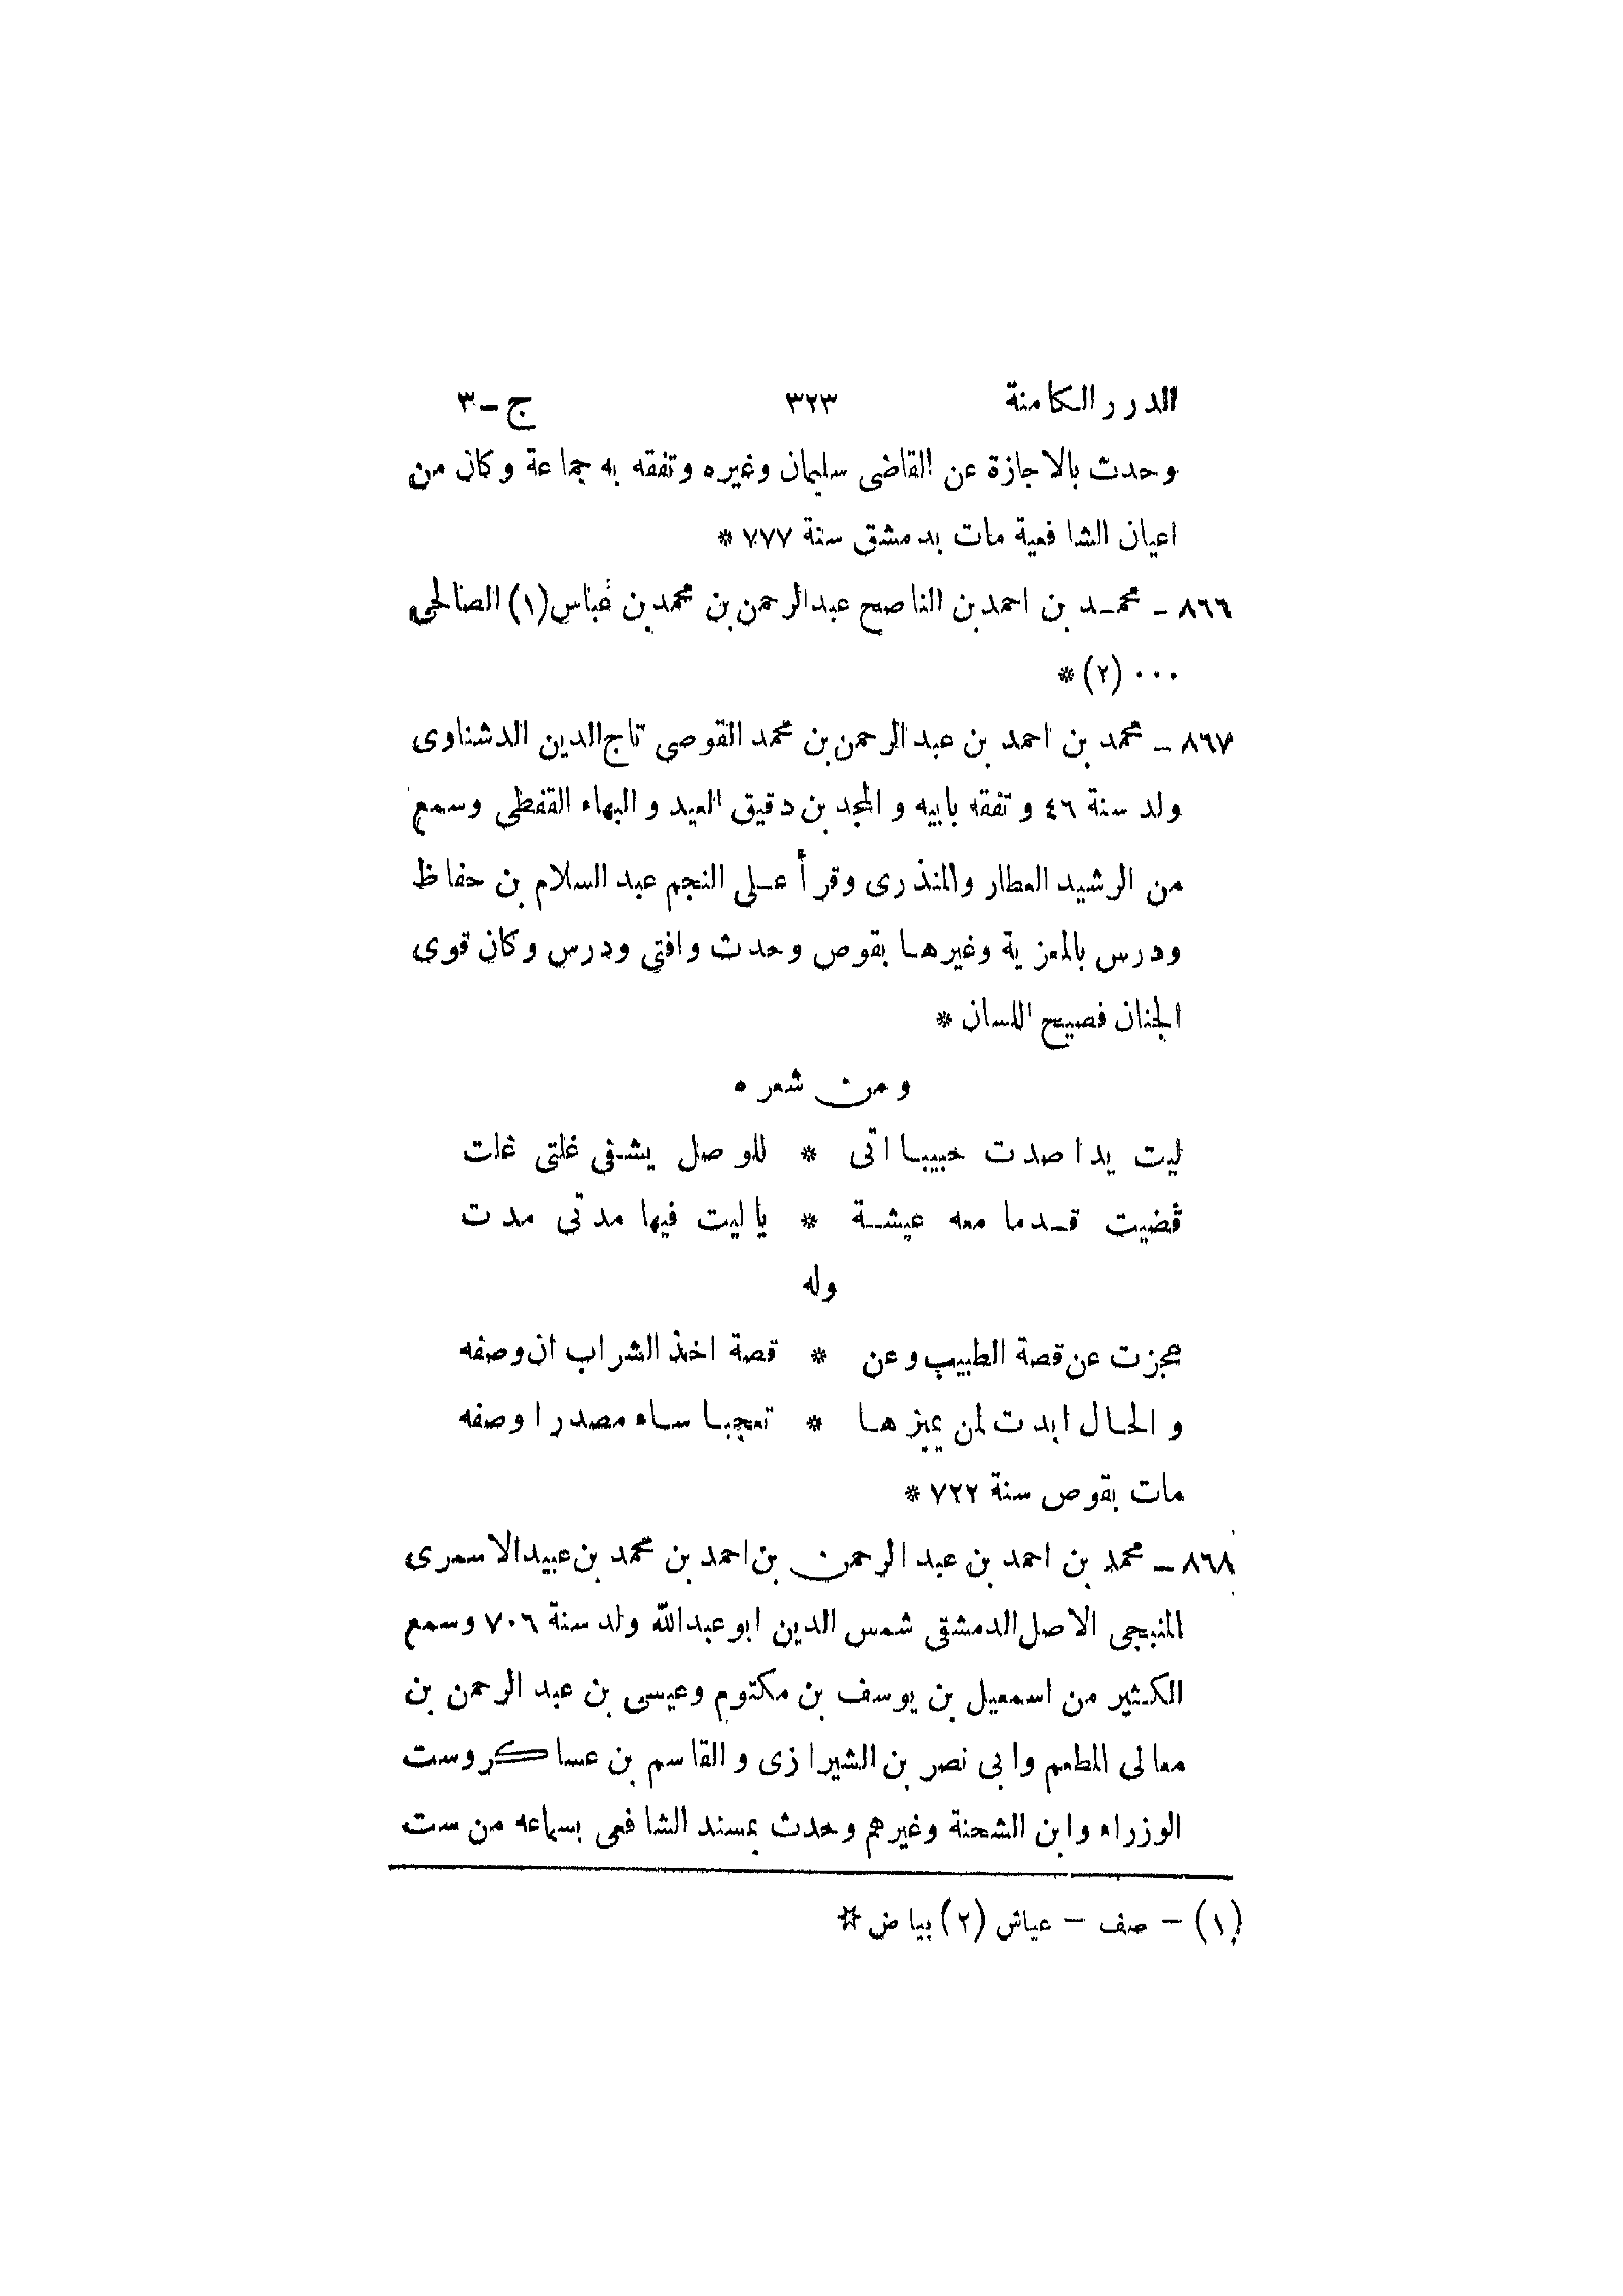 الدرر الكامنة ٣٢٣ ج-٣
وحدث بالاجازة عن القاضى سليمان وغيره وتفقه به جماعة وكان من
اعيان الشافعية مات بدمشق سنة ٧٧٧ *
٨٦٦ - محمد بن احمد بن الناصح عبد الرحمن بن محمد بن عباس (١) الصالحى
... (٢) *
٨٦٧ - محمد بن احمد بن عبد الرحمن بن محمد القوصى تاج الدين الدشناوى
ولد سنة ٤٦ وتفقه بابيه والمجد بن دقيق العيد والبهاء القفطى وسمع
من الرشيد العطار والمنذرى وقرأ على النجم عبد السلام بن حفاظ
ودرس بالمعزية وغيرها بقوص وحدث وافتى ودرس وكان قوى
الجنان فصيح اللسان *
ومن شعره
ليت يدا صدت حبيبا اتى * للوصل يشفى غلتى غلت
قضيت قدما معه عيشة * يا ليت فيها مدتى مدت
وله
عجزت عن قصة الطبيب وعن * قصة اخذ الشراب ان وصفه
والحال ابدت لمن يميزها * تعجبا ساء مصدرا وصفه
مات بقوص سنة ٧٢٢ *
٨٦٨ - محمد بن احمد بن عبد الرحمن بن احمد بن محمد بن عبيد الاسمرى
المنبجى الاصل الدمشقى شمس الدين ابو عبدالله ولد سنة ٧٠٦ وسمع
الكثير من اسمعيل بن يوسف بن مكتوم وعيسى بن عبد الرحمن بن
معالى المطعم وابى نصر بن الشيرازى والقاسم بن عساكر وست
الوزراء وابن الشحنة وغيرهم وحدث بمسند الشافعى بسماعه من ست
(١) - صف - عياش (٢) بياض *